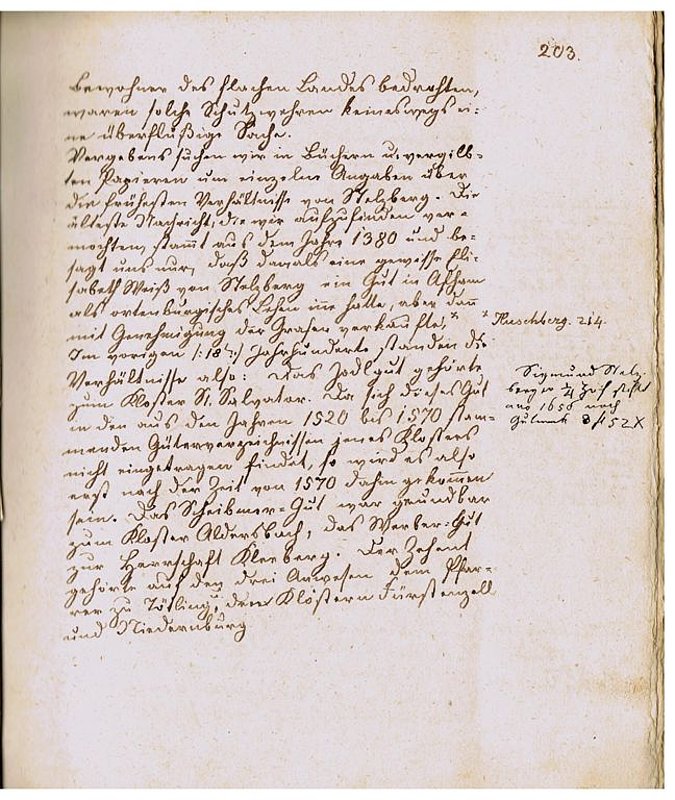 203.
Bewohner des flachen Landes bedrohten,
waren solche Schutzwehren keineswegs ei-
ne überflüßige Sache.
Vergebens suchen wir in Büchern u. vergilb-
ten Papieren um einzelne Angaben über
die frühesten Verhältniße von Stelzberg. Die
älteste Nachricht, die wir aufzufinden ver-
mochten, stam̅t aus dem Jahre 1380 und be-
sagt uns nur, daß damals eine gewisse Eli-
sabeth Weiß von Stelzberg ein Gut in Aſham
als ortenburgisches Lehen inne hatte, aber dan̅
mit Genehmigung der Grafen verkaufte. ×
× Huschberg. 214.
Im vorigen /:18t:/ Jahrhunderte standen die
Verhältniße also: Das Jodlgut gehörte
zum Kloster St. Salvator. Da sich dieses Gut
in den aus den Jahren 1520 bis 1570 stam-
menden Güterverzeichnissen jenes Klosters
nicht eingetragen findet, so wird es also
erst nach der Zeit von 1570 dahin gekom̅en
sein. Das Scheibmer-Gut war grundbar
zum Kloster Aldersbach, das Werber-Gut
zur Herrschaft Kleeberg. Der Zehent
gehörte auf den drei Anwesen dem Pfar-
rer zu Tötling, den Klöstern Fürstenzell
und Niedernburg
Sigmund Stelz-
berger
1656 noch
8 fl 52 X